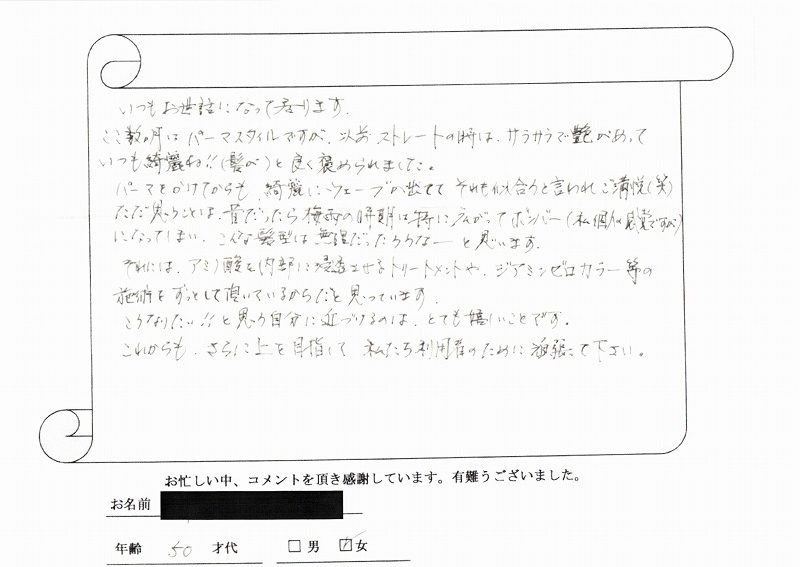 いつもお世話になって居ります。
ここ数ヶ月はパーマスタイルですが、以前ストレートの時は、サラサラで艶があって
いつも綺麗ね!!(髪が)と良く褒められました。
パーマをかけてからも、綺麗にウェーブが出てて それも似合うと言われ、ご満悦(笑)
ただ思うことは、昔だったら梅雨の時期は特に広がってボンバー(私個人の感覚ですが)
になってしまい、こんな髪型は無理だったろうなーと思います。
それには、アミノ酸を内部に浸透させるトリートメントや、ジアミンゼロカラー等の
施術をずっとして頂いているからだと思っています。
こうなりたい!!と思う自分に近づけるのは、とても嬉しいことです。
これからも、さらに上を目指して 私たち利用者のために頑張って下さい。
お忙しい中、コメントを頂き感謝しています。有難うございました。
お名前
年齢 50 才代 □ 男 ☑ 女